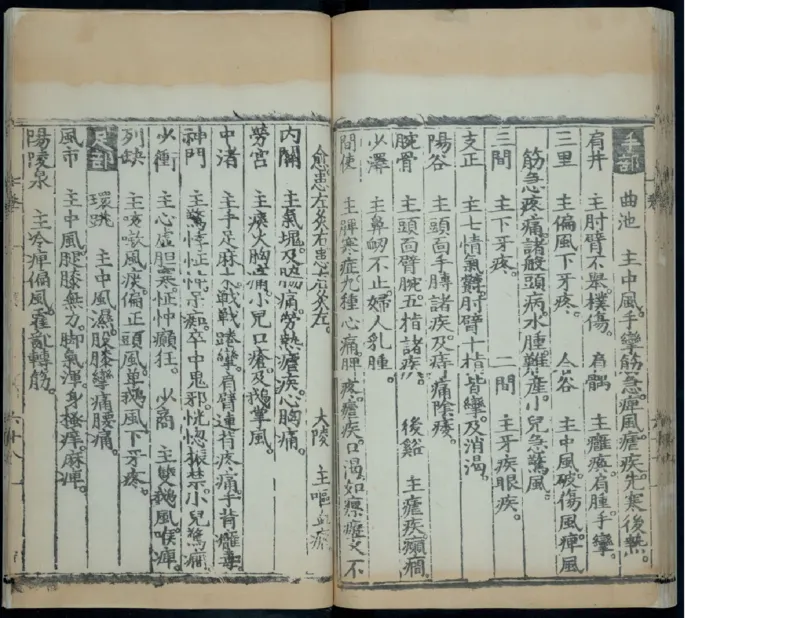 手部 曲池 主中風。手攣筋急。痺風瘧疾。先寒後熱。
肩井 主肘臂不舉。樸傷。 肩髃 主癱瘓。肩腫手攣。
三里 主偏風下牙疼。 合谷 主中風。破傷風。痺風
筋急疼痛。諸般頭病。水腫。難產。小兒急驚風。
三間 主下牙疼。 二間 主牙疾眼疾。
支正 主七情氣鬱。肘臂十指皆攣。及消渴。
陽谷 主頭面手膊諸疾。及痔痛陰痿。
腕骨 主頭面臂腕五指諸疾。 後谿 主瘧疾癲癇。
少澤 主鼻衂不止。婦人乳腫。
間使 主脾寒症。九種心痛。脾疼。瘧疾。口渴。如瘰癧久不
愈。患左灸右。患右灸左。 大陵 主嘔血瘧
內關 主氣塊。及脇痛。勞熱瘧疾。心胸痛。
勞宮 主痰火胸痛。小兒口瘡。及鵝掌風。
中渚 主手足麻木。戰戰踡攣。肩臂連背疼痛。手背癰毒。
神門 主驚悸怔忡。呆癡。卒中鬼邪。恍惚振禁。小兒驚癇
少衝 主心虛胆寒。怔忡癲狂。 少商 主雙鵝風。喉痺。
列缺 主咳嗽風痰。偏正頭風。單鵝風。下牙疼。
足部 環跳 主中風濕。股膝攣痛。腰痛。
風市 主中風。腿膝無力。脚氣。渾身搔痒。麻痺。
陽陵泉 主冷痺偏風。霍亂轉筋。
六十八